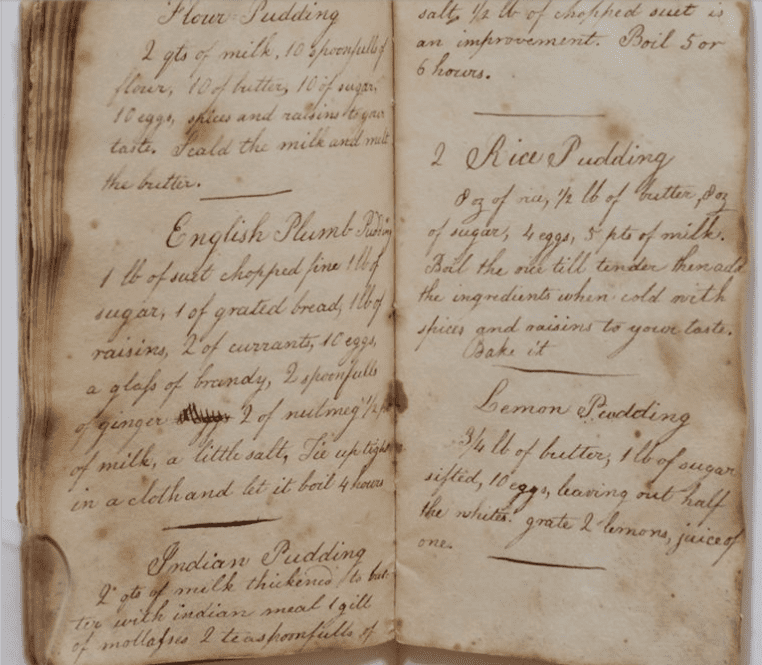 Flour Pudding
2 qts of milk, 10 spoonfulls of
flour, 10 of butter, 10 of sugar,
10 eggs, spices and raisins to your
taste. Scald the milk and melt
the butter.
English Plumb Pudding
1 lb of suet chopped fine 1 lb of
sugar, 1 of grated bread, 1 lb of
raisins, 2 of currants, 10 eggs,
a glass of brandy, 2 spoonfulls
of ginger 2 of nutmeg 1/2
of milk, a little salt, Tie up tight
in a cloth and let it boil 4 hours
Indian Pudding
2 qts of milk thickened to bat-
ter with indian meal 1 gill
of mollasses 2 teaspoonfulls of
salt, 1/2 lb of chopped suet is
an improvement. Boil 5 or
6 hours.
2 Rice Pudding
8 oz of rice, 1/2 lb of butter, 8 oz
of sugar, 4 eggs, 5 pts of milk.
Boil the rice till tender then add
the ingredients when cold with
spices and raisins to your taste.
Bake it
Lemon Pudding
3/4 lb of butter, 1 lb of sugar
sifted, 10 eggs, leaving out half
the whites. grate 2 lemons, juice of
one.